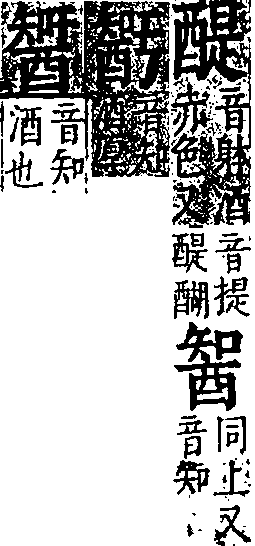 醍
音躰酒
赤色又
音提
醍醐
同上又
音知
音知
酒厚
音知
酒也